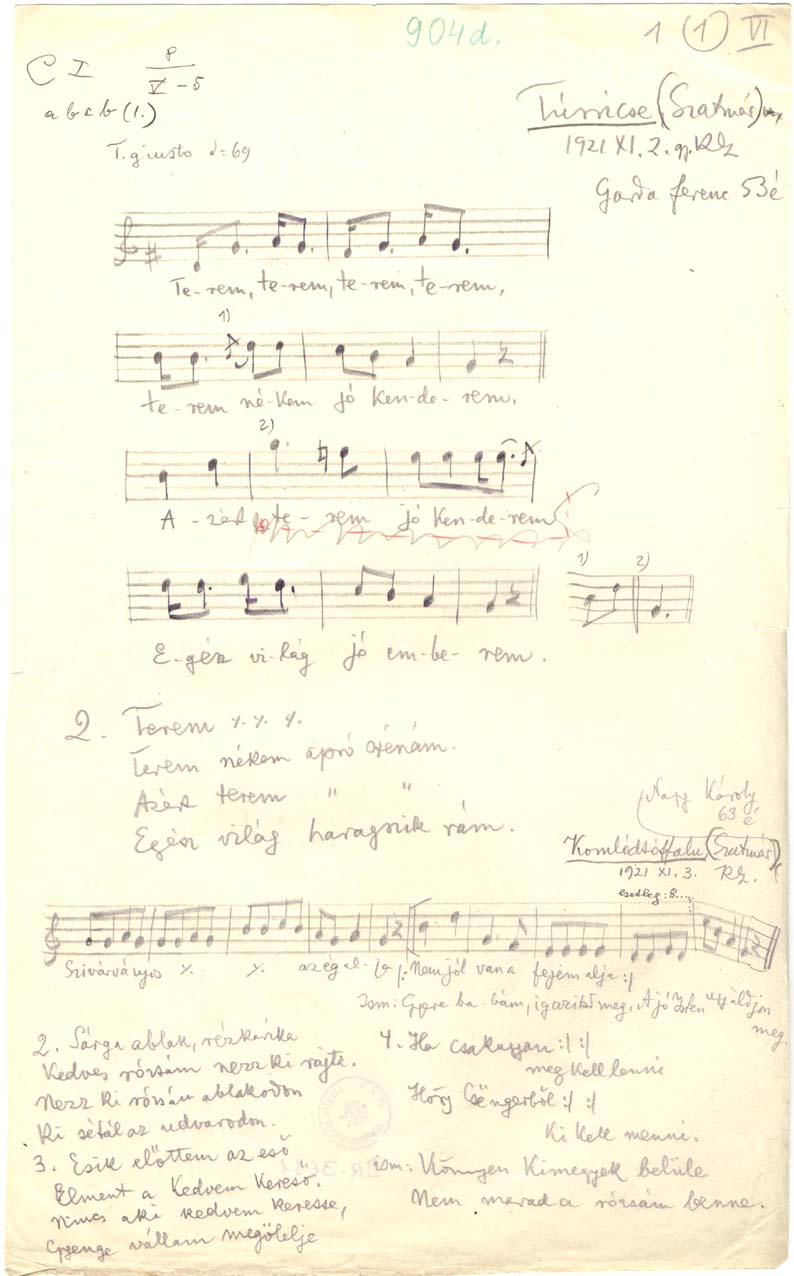 904d.
1 (1) VI
C I 8
V - 5
a b c b (1.)
T. giusto ♩=69
Túrricse (Szatmár)
1921 XI. 2. gy.
Garda Ferenc 53 é
Te-rem, te-rem, te-rem, te-rem,
1)
te-rem né-kem jó ken-de-rem.
2)
A-zért te-rem jó ken-de-rem
1) 2)
E-gész vi-lág jó em-be-rem.
2. Terem ٪ ٪ ٪
Terem nékem apró
Azért terem " "
Egész világ haragszik rám.
Nagy Károly
63 é
Komlódtótfalu (Szatmár)
1921 XI. 3.
esetleg: 8...
Szivárványos ٪ ٪ az ég al-ja |: Nem jól van a fejem alja :|
ism: Gyere ba-bám, igazítsd meg, A jó Isten "áldjon
meg.
2. Sárga ablak, rézkarika
Kedves rózsám nezz ki rajta.
Nezz ki rózsám ablakodon
Ki sétál az udvarodon.
3. Esik előttem az eső
Elment a kedvem kereső.
Nincs aki kedvem keresse,
Gyenge vállam megölelje
4. Ha csakugyan :| :|
meg kell lenni
Csengerből :| :|
Ki kell menni.
ism: Könnyen kimegyek belüle
Nem marad a rózsám benne.